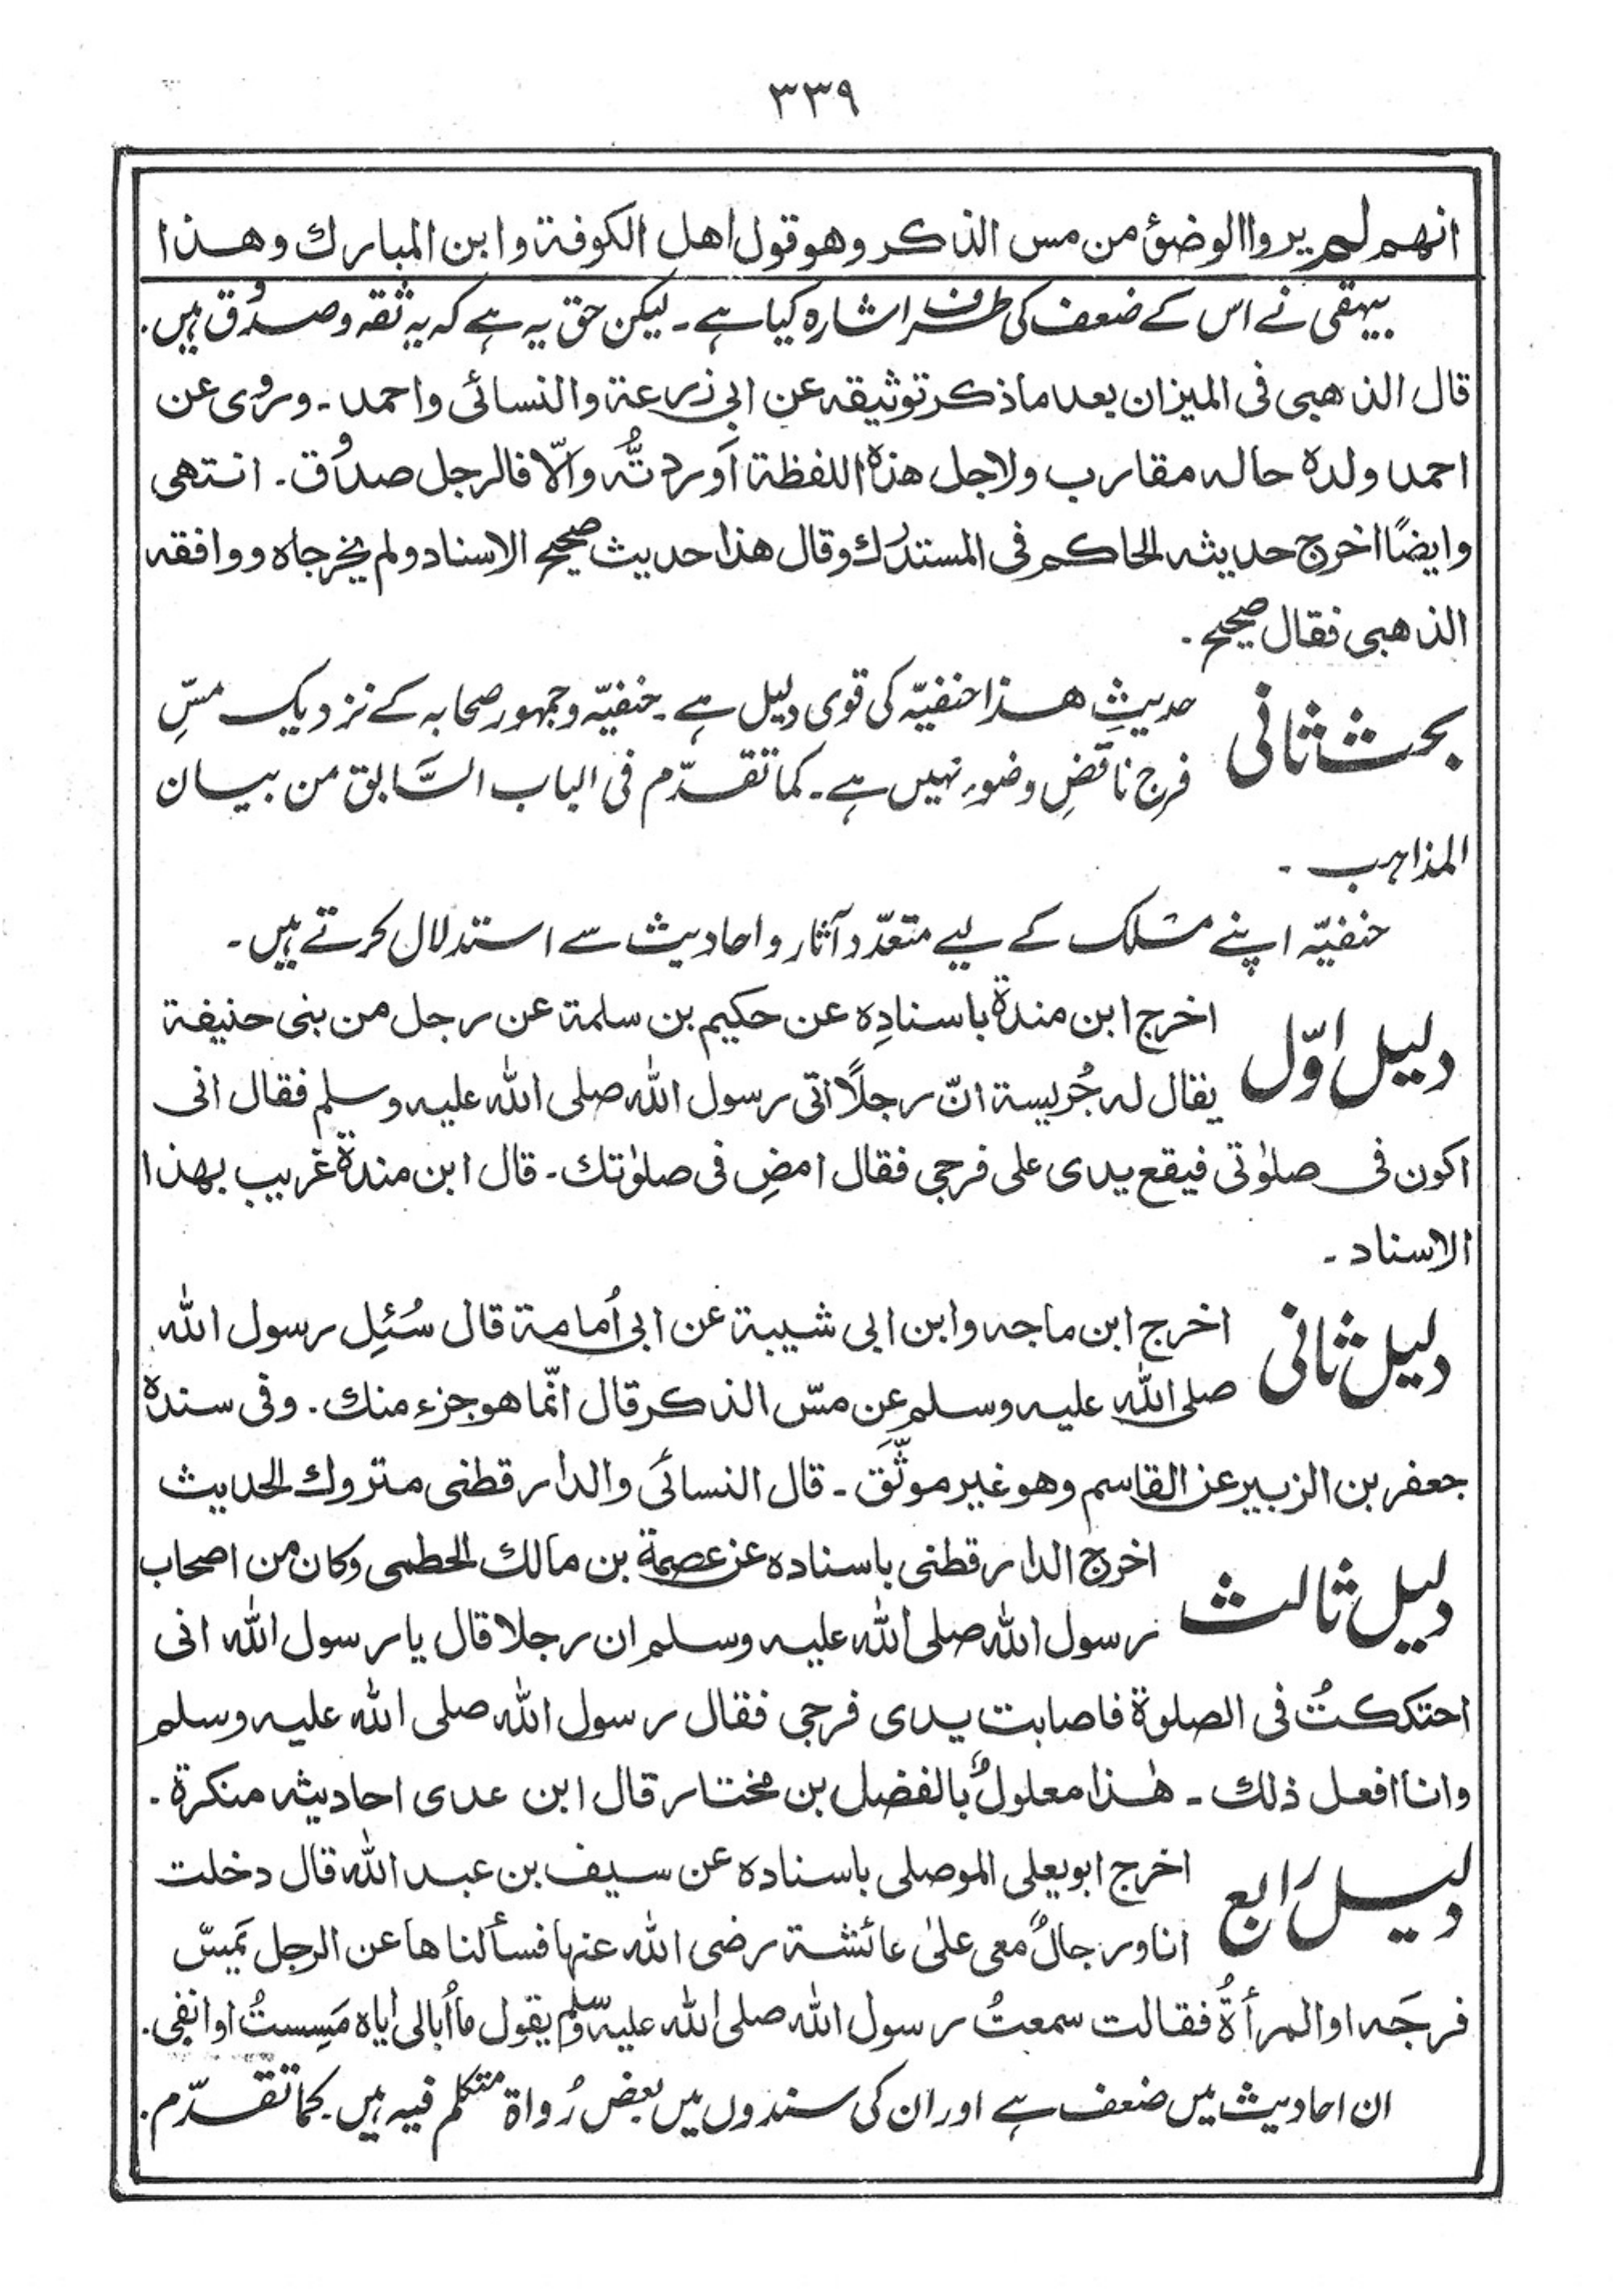 ٣٣٩
انهم لم يروا الوضوٴ من مس الذكر وهو قول اهل الكوفة وابن المبارك وهذا
بیہقی نے اس کے ضعف کی طرف اشارہ کیا ہے۔ لیکن حق یہ ہے کہ یہ ثقہ و صدُوق ہیں.
قال الذهبی فی المیزان بعد ما ذکر توثیقه عن ابی زرعة والنسائی واحمد۔ ورُوی عن
احمد ولدہ حاله مقارب ولاجل هذه اللفظة اَوردتُّه واِلّا فالرجل صدُوق۔ انتهی
وایضًا اخرج حدیثه الحاکم فی المستدرك وقال هذا حدیث صحیح الاسناد ولم یخرجاه ووافقه
الذهبی فقال صحیح۔
بحث ثانی حدیثِ هذا حنفیّہ کی قوی دلیل ہے۔ حنفیّہ و جمہور صحابہ کے نزدیک مسِّ
فرج ناقضِ وضوء نہیں ہے۔ کما تقدّم فی الباب السَّابق من بیان
المذاہب۔
حنفیّہ اپنے مسلک کے لیے متعدّد آثار و احادیث سے استدلال کرتے ہیں۔
دلیل اوّل اخرج ابن مندة باسنادِہ عن حکیم بن سلمة عن رجل من بنی حنیفة
یقال له جُریسة انّ رجلًا اتی رسول الله صلی الله علیه وسلم فقال انی
اکون فی صلوٰتی فیقع یدی علی فرجی فقال امضِ فی صلوٰتك۔ قال ابن مندة غریب بهذا
الاسناد۔
دلیل ثانی اخرج ابن ماجه وابن ابی شیبة عن ابی اُمامة قال سُئِل رسول الله
صلی الله علیه وسلم عن مسّ الذکر قال انّما هو جزء منك. وفی سندہ
جعفر بن الزبیر عن القاسم وهو غیر موثَّق۔ قال النسائی والدارقطنی متروك الحدیث
دلیل ثالث اخرج الدارقطنی باسنادہ عن عصمة بن مالك الخطمی وکان من اصحاب
رسول الله صلی الله علیه وسلم ان رجلا قال یا رسول الله انی
احتککتُ فی الصلوة فاصابت یدی فرجی فقال رسول الله صلی الله علیه وسلم
وانا افعل ذلك۔ هٰذا معلولٌ بالفضل بن مختار قال ابن عدی احادیثه منکرة۔
دلیل رابع اخرج ابویعلی الموصلی باسناده عن سیف بن عبد الله قال دخلت
انا ورجالٌ معی علیٰ عائشة رضی الله عنها فسألناها عن الرجل یَمسّ
فرجَه او المرأةُ فقالت سمعتُ رسول الله صلی الله علیه وسلم یقول ما اُبالی ایاه مَسِستُ او انفی.
ان احادیث میں ضعف ہے اور ان کی سندوں میں بعض رُواة متکلم فیہ ہیں۔ کما تقدّم.